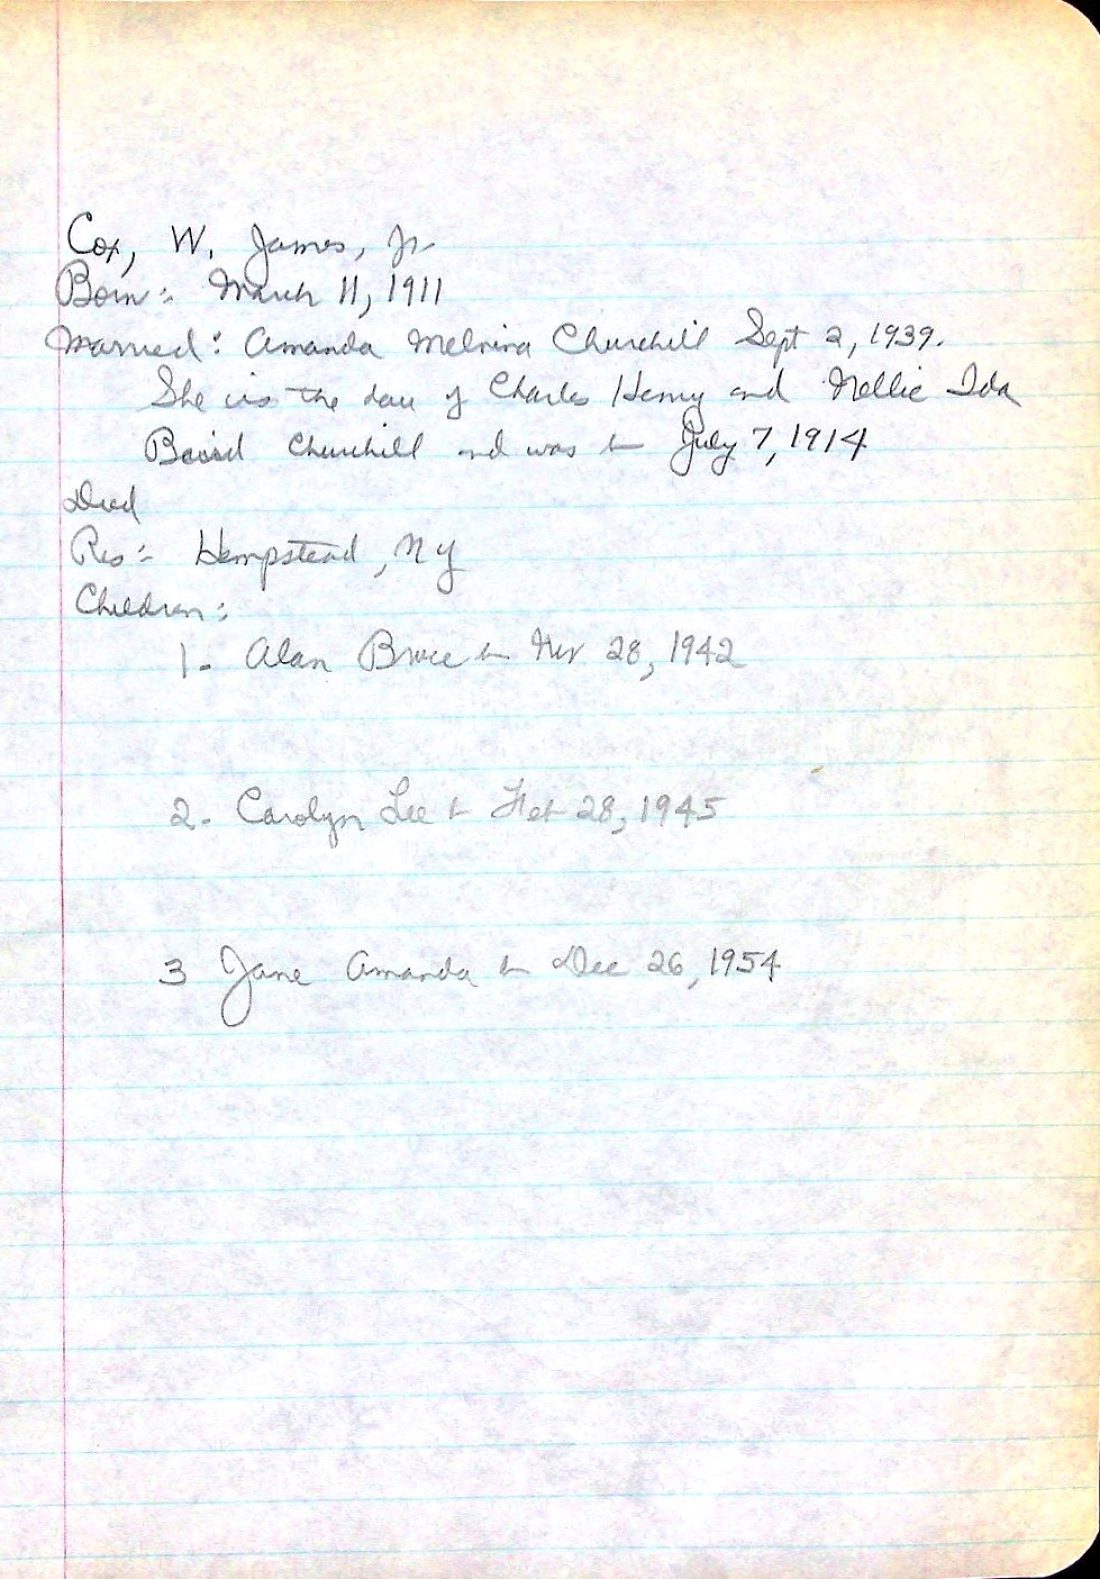 Cox, W. James, Jr.
Born: March 11, 1911
Married: Amanda Melvina Churchill Sept 2, 1939.
She is the dau of Charles Henry and Nellie Ida
Baird Churchill and was b July 7, 1914
Died
Res: Hempstead, NY
Children:
1. Alan Bruce b Nov 28, 1942
2. Carolyn Lee b Feb 28, 1945
3 Jane Amanda b Dec 26, 1954